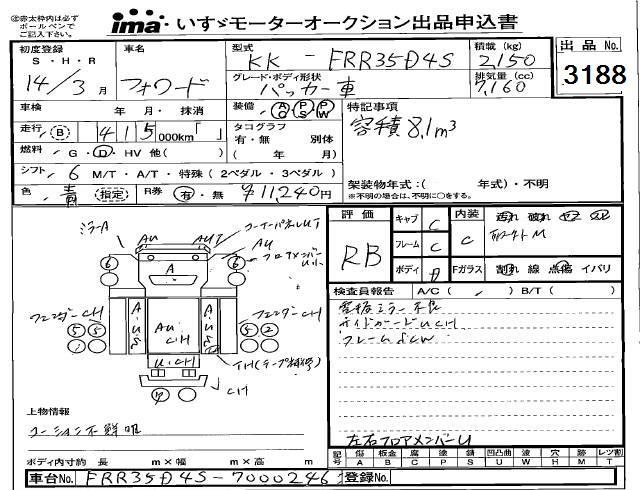 ①赤太枠内は必ず
ボールペンで
ご記入下さい。
ima いすゞモーターオークション出品申込書
初度登録
S・H・R
14/3月
車名
フォワード
型式
KK - FRR35D4S
積載(kg)
2,150
出品 No.
3188
グレード・ボディ形状
パッカー車
排気量(cc)
7,160
車検 年・月・抹消
装備 AC PS PW
特記事項
容積8.1m³
走行 B 415 000km「 」
タコグラフ
有・無 別体
( 年 月)
燃料 G・D・HV 他( )
シフト 6 M/T・A/T・特殊(2ペダル・3ペダル)
架装物年式:( 年式)・不明
※不明の場合は、不明に○をする。
色 青 (指定) R券 有・無 ¥11,240円
評価
RB
キャブ C
フレーム C
ボディ A
内装 C
Fガラス 割れ 線 点傷 イバリ
検査員報告 A/C( ) B/T( )
電格ミラー不良
サイドガードUCH
フレームSCW
左右フロアメンバーU
ミラーA
AU
AUT
コーナーパネルUT
AU
フロアメンバー
A
6
6
フェンダーCH
フェンダーCH
AUS
AU
CH
AUS
5 5
5 2
UCH
TH(テープ補修)
CH
7
上物情報
コーションン不鮮明
ボディ内寸約 長 m×幅 m×高 m
記号 傷A 板金B 腐C 塗P 錆S 凹凸曲U 波W 穴H 跡M レツ割T
車台No. FRR35D4S-7000246
登録No.